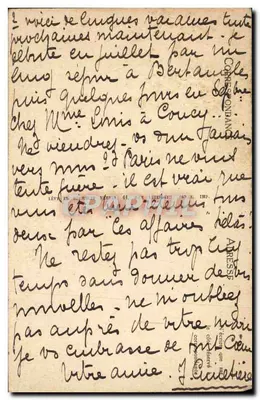 voici de longues vacances toutes
prochaines maintenant. Je
débute en juillet par un
long séjour à Bertangles
puis quelques jours en
chez Mme Louis à Coucy.
Ne viendrez-vs donc jamais
vers nous? Paris ne vous
tente guère - il est vrai que
vous êtes retenus tous
deux par les affaires
Ne restez pas trop long
temps sans donner de vos
nouvelles - ne m'oubliez
pas auprès de votre mari
Je vs embrasse de tout cœur
Votre amie. J.
CORRESPONDANCE
ADRESSE